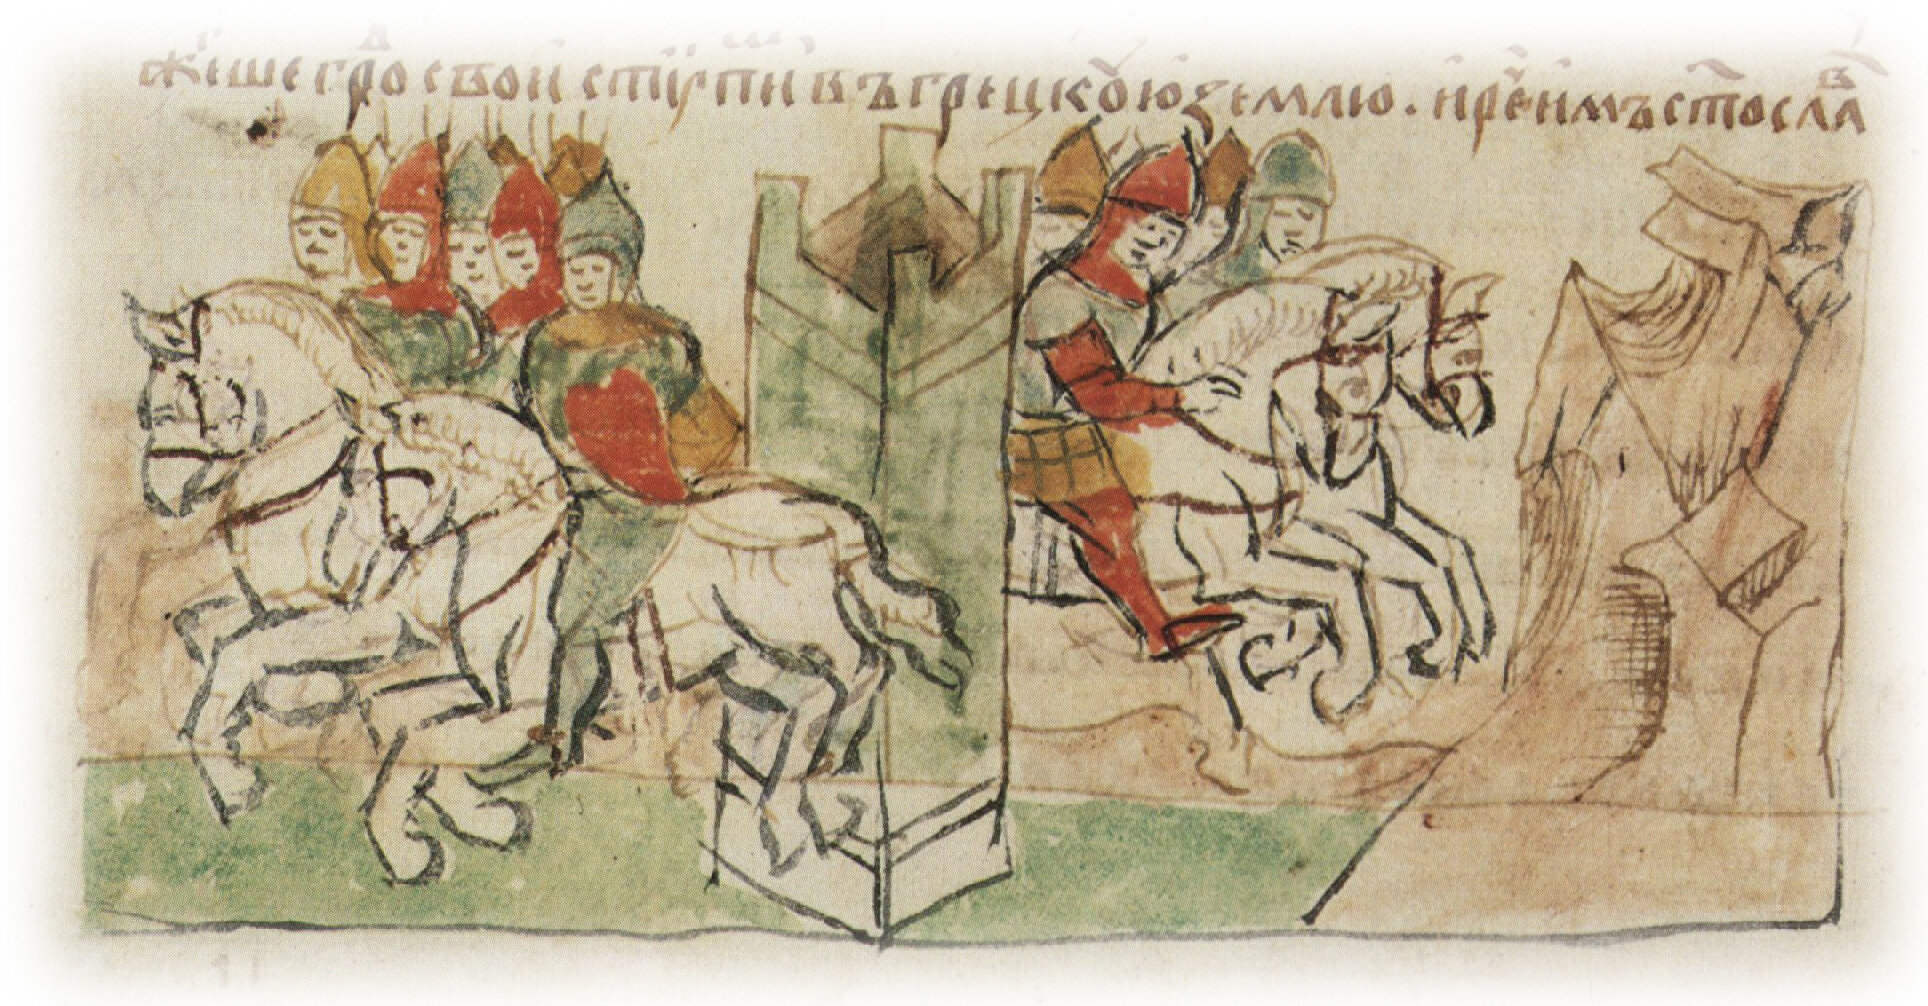 жешегро свои стꙋпи въ грецкою землю . и рⷱ҇е имъ ст҃ославⷡ